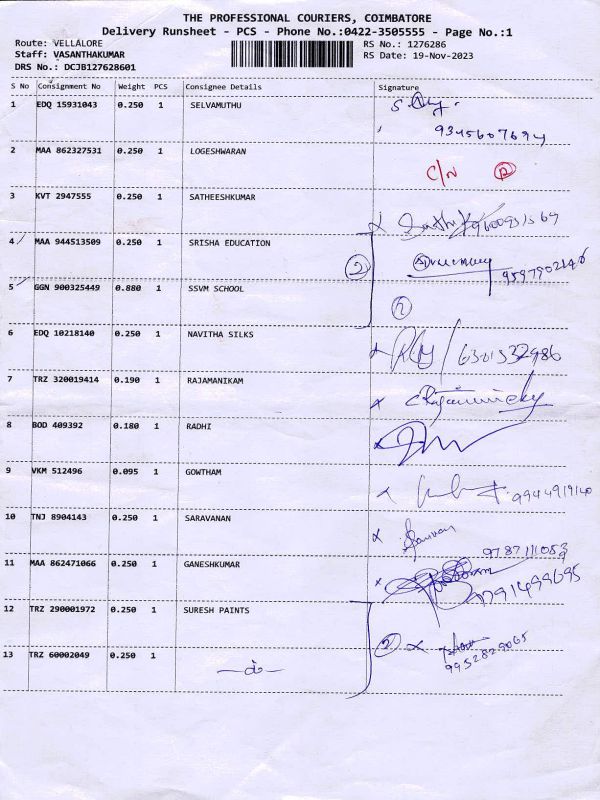 THE PROFESSIONAL COURIERS, COIMBATORE
Delivery Runsheet - PCS - Phone No.:0422-3505555 - Page No.:1
Route: VELLALORE RS No.: 1276286
Staff: VASANTHAKUMAR RS Date: 19-Nov-2023
DRS No.: DCJB127628601
S No Consignment No Weight PCS Consignee Details Signature
1 EDQ 15931043 0.250 1 SELVAMUTHU
9345607694
2 MAA 862327531 0.250 1 LOGESHWARAN
C/N
3 KVT 2947555 0.250 1 SATHEESHKUMAR
4 MAA 944513509 0.250 1 SRISHA EDUCATION
2
5 GGN 900325449 0.880 1 SSVM SCHOOL
6 EDQ 10218140 0.250 1 NAVITHA SILKS
6301332986
7 TRZ 320019414 0.190 1 RAJAMANIKAM
8 BOD 409392 0.180 1 RADHI
9 VKM 512496 0.095 1 GOWTHAM
9944919140
10 TNJ 8904143 0.250 1 SARAVANAN
9787111053
11 MAA 862471066 0.250 1 GANESHKUMAR
12 TRZ 290001972 0.250 1 SURESH PAINTS
2
9952829065
13 TRZ 60002049 0.250 1